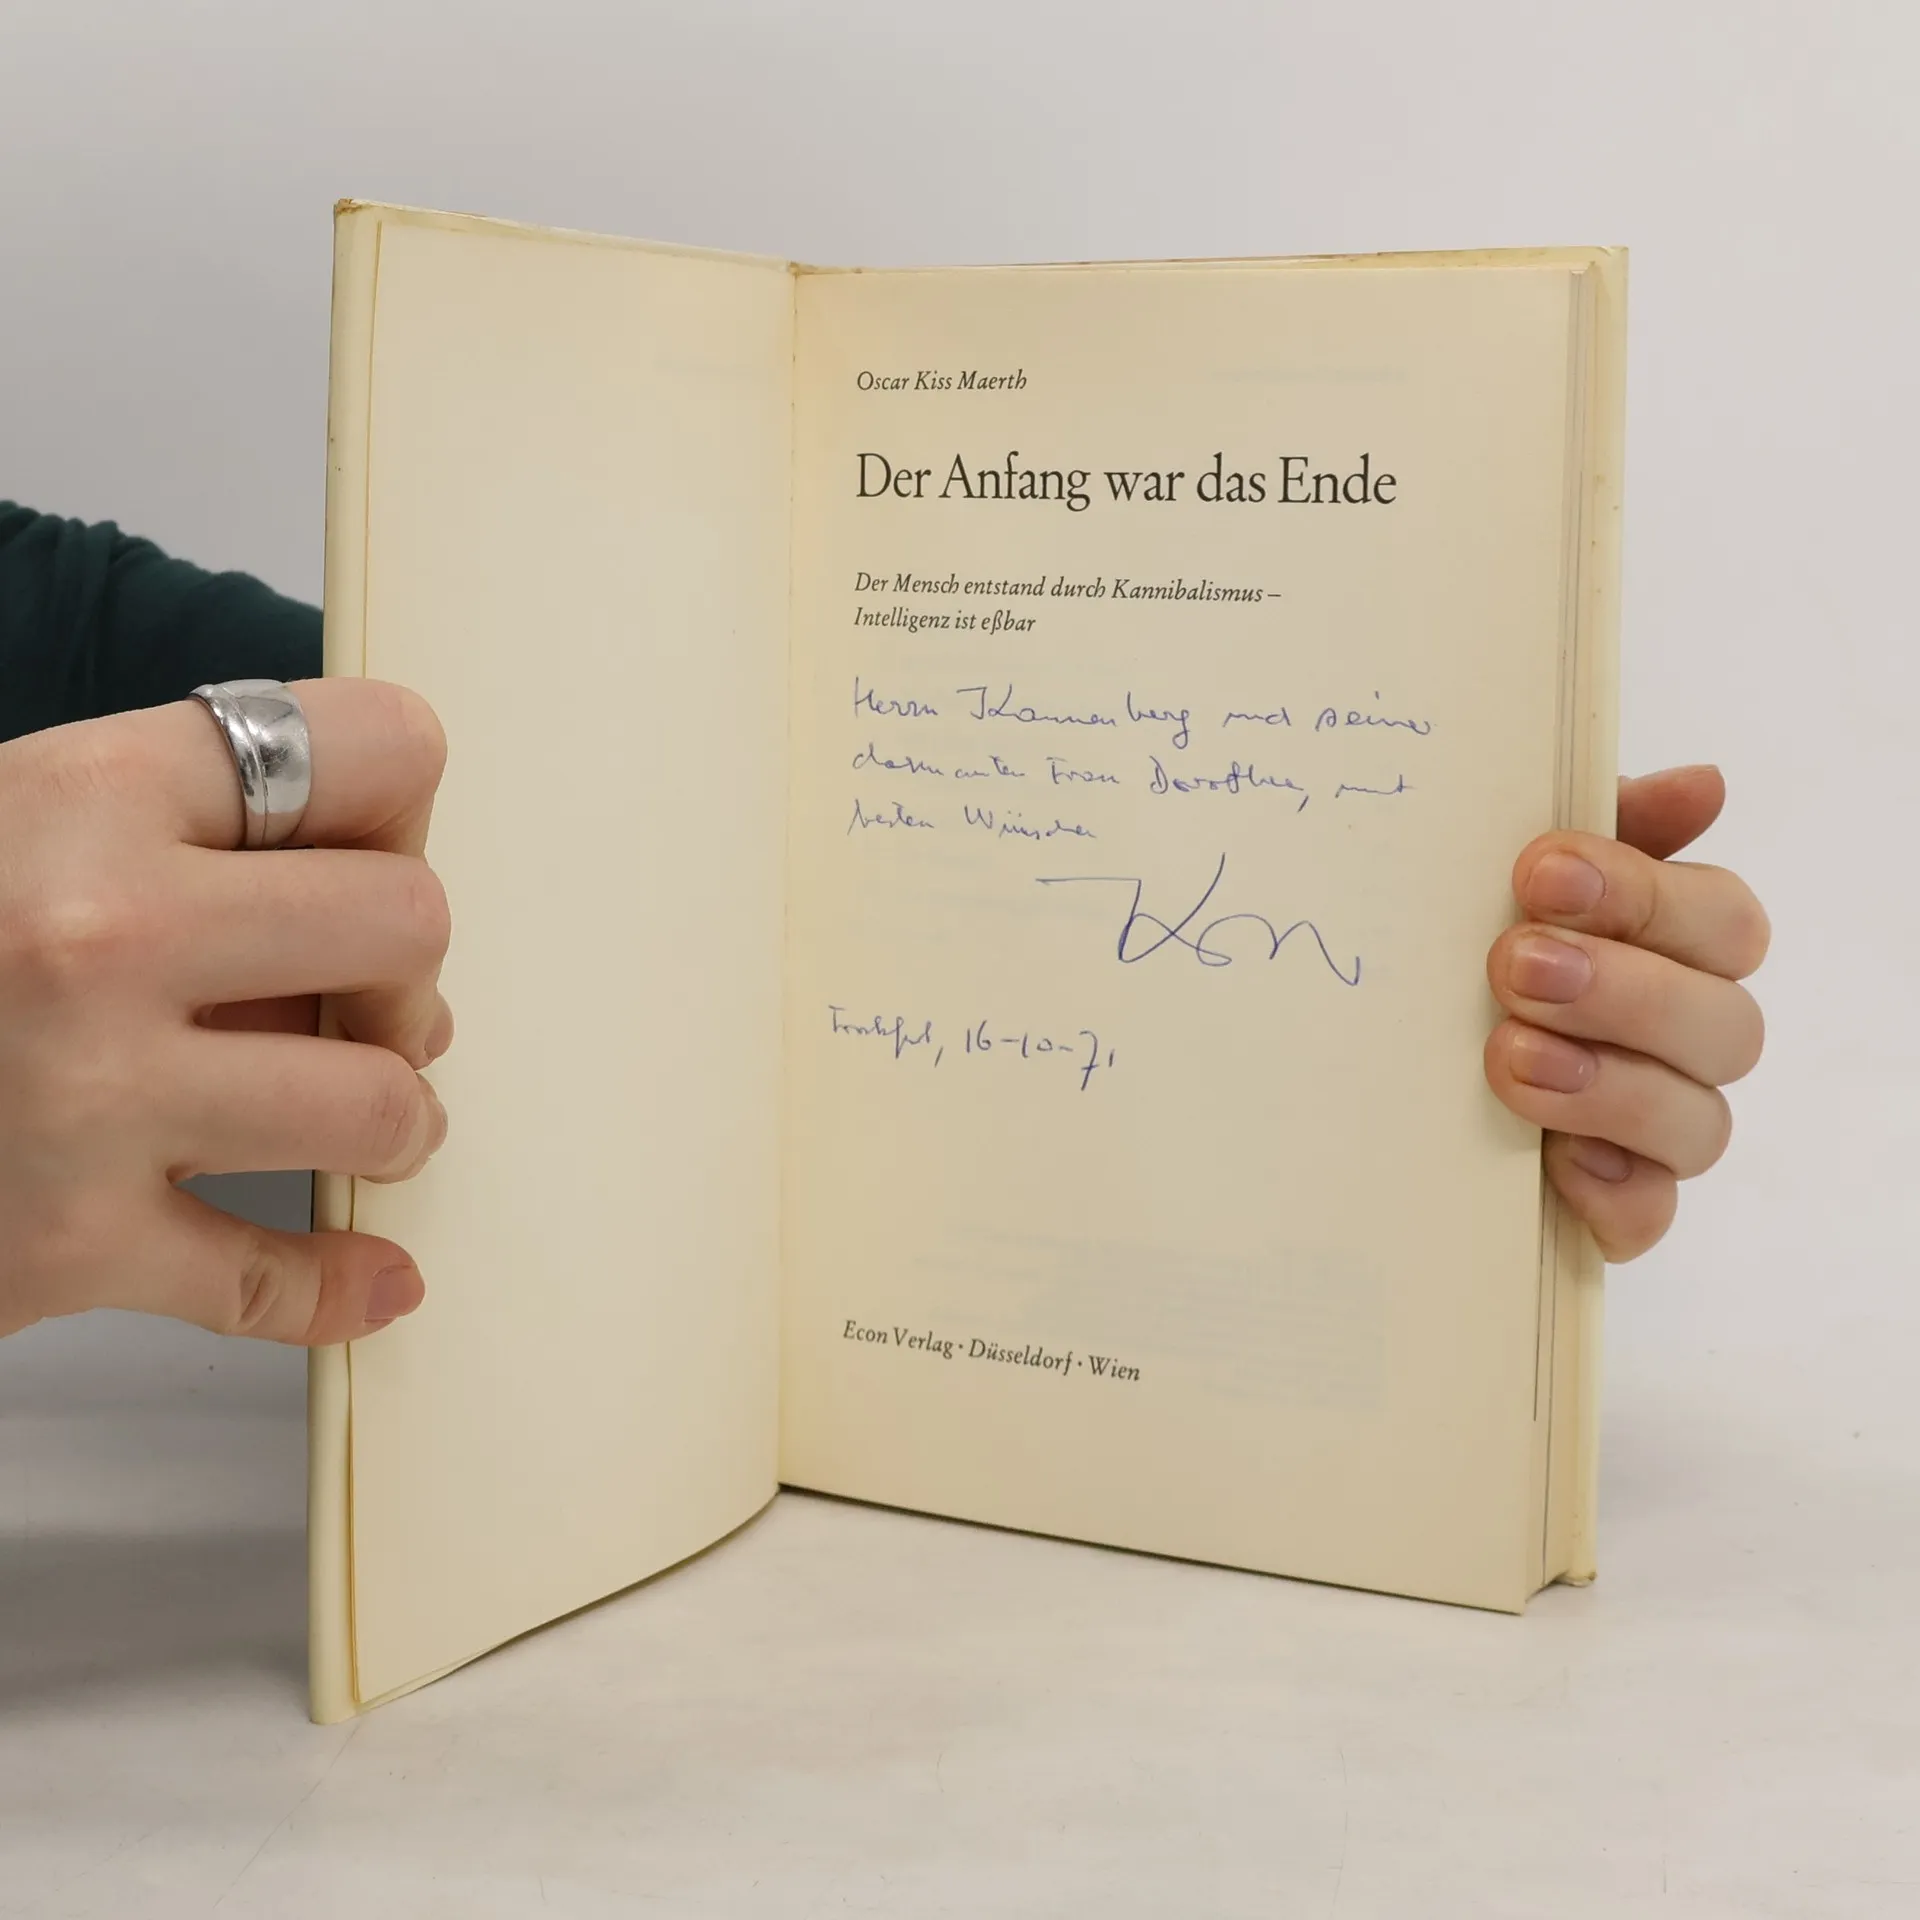 Oscar Kiss Maerth
Der Anfang war das Ende
Der Mensch entstand durch Kannibalismus –
Intelligenz ist eßbar
Herrn Kannenberg und seiner
charmanten Frau Dorothea, mit
besten Wünschen
Frankfurt, 16-10-71
Econ Verlag · Düsseldorf · Wien